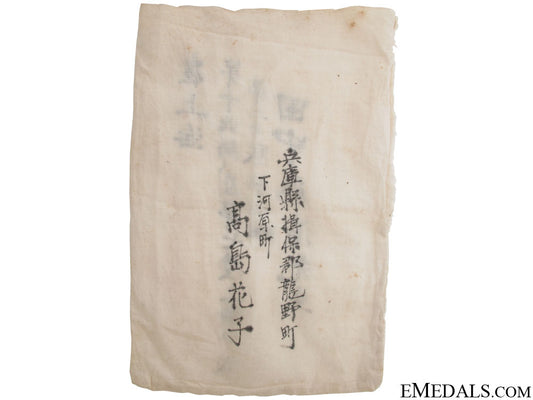 兵庫縣揖保郡龍野町
下河原町
高島花子
EMEDALS.COM